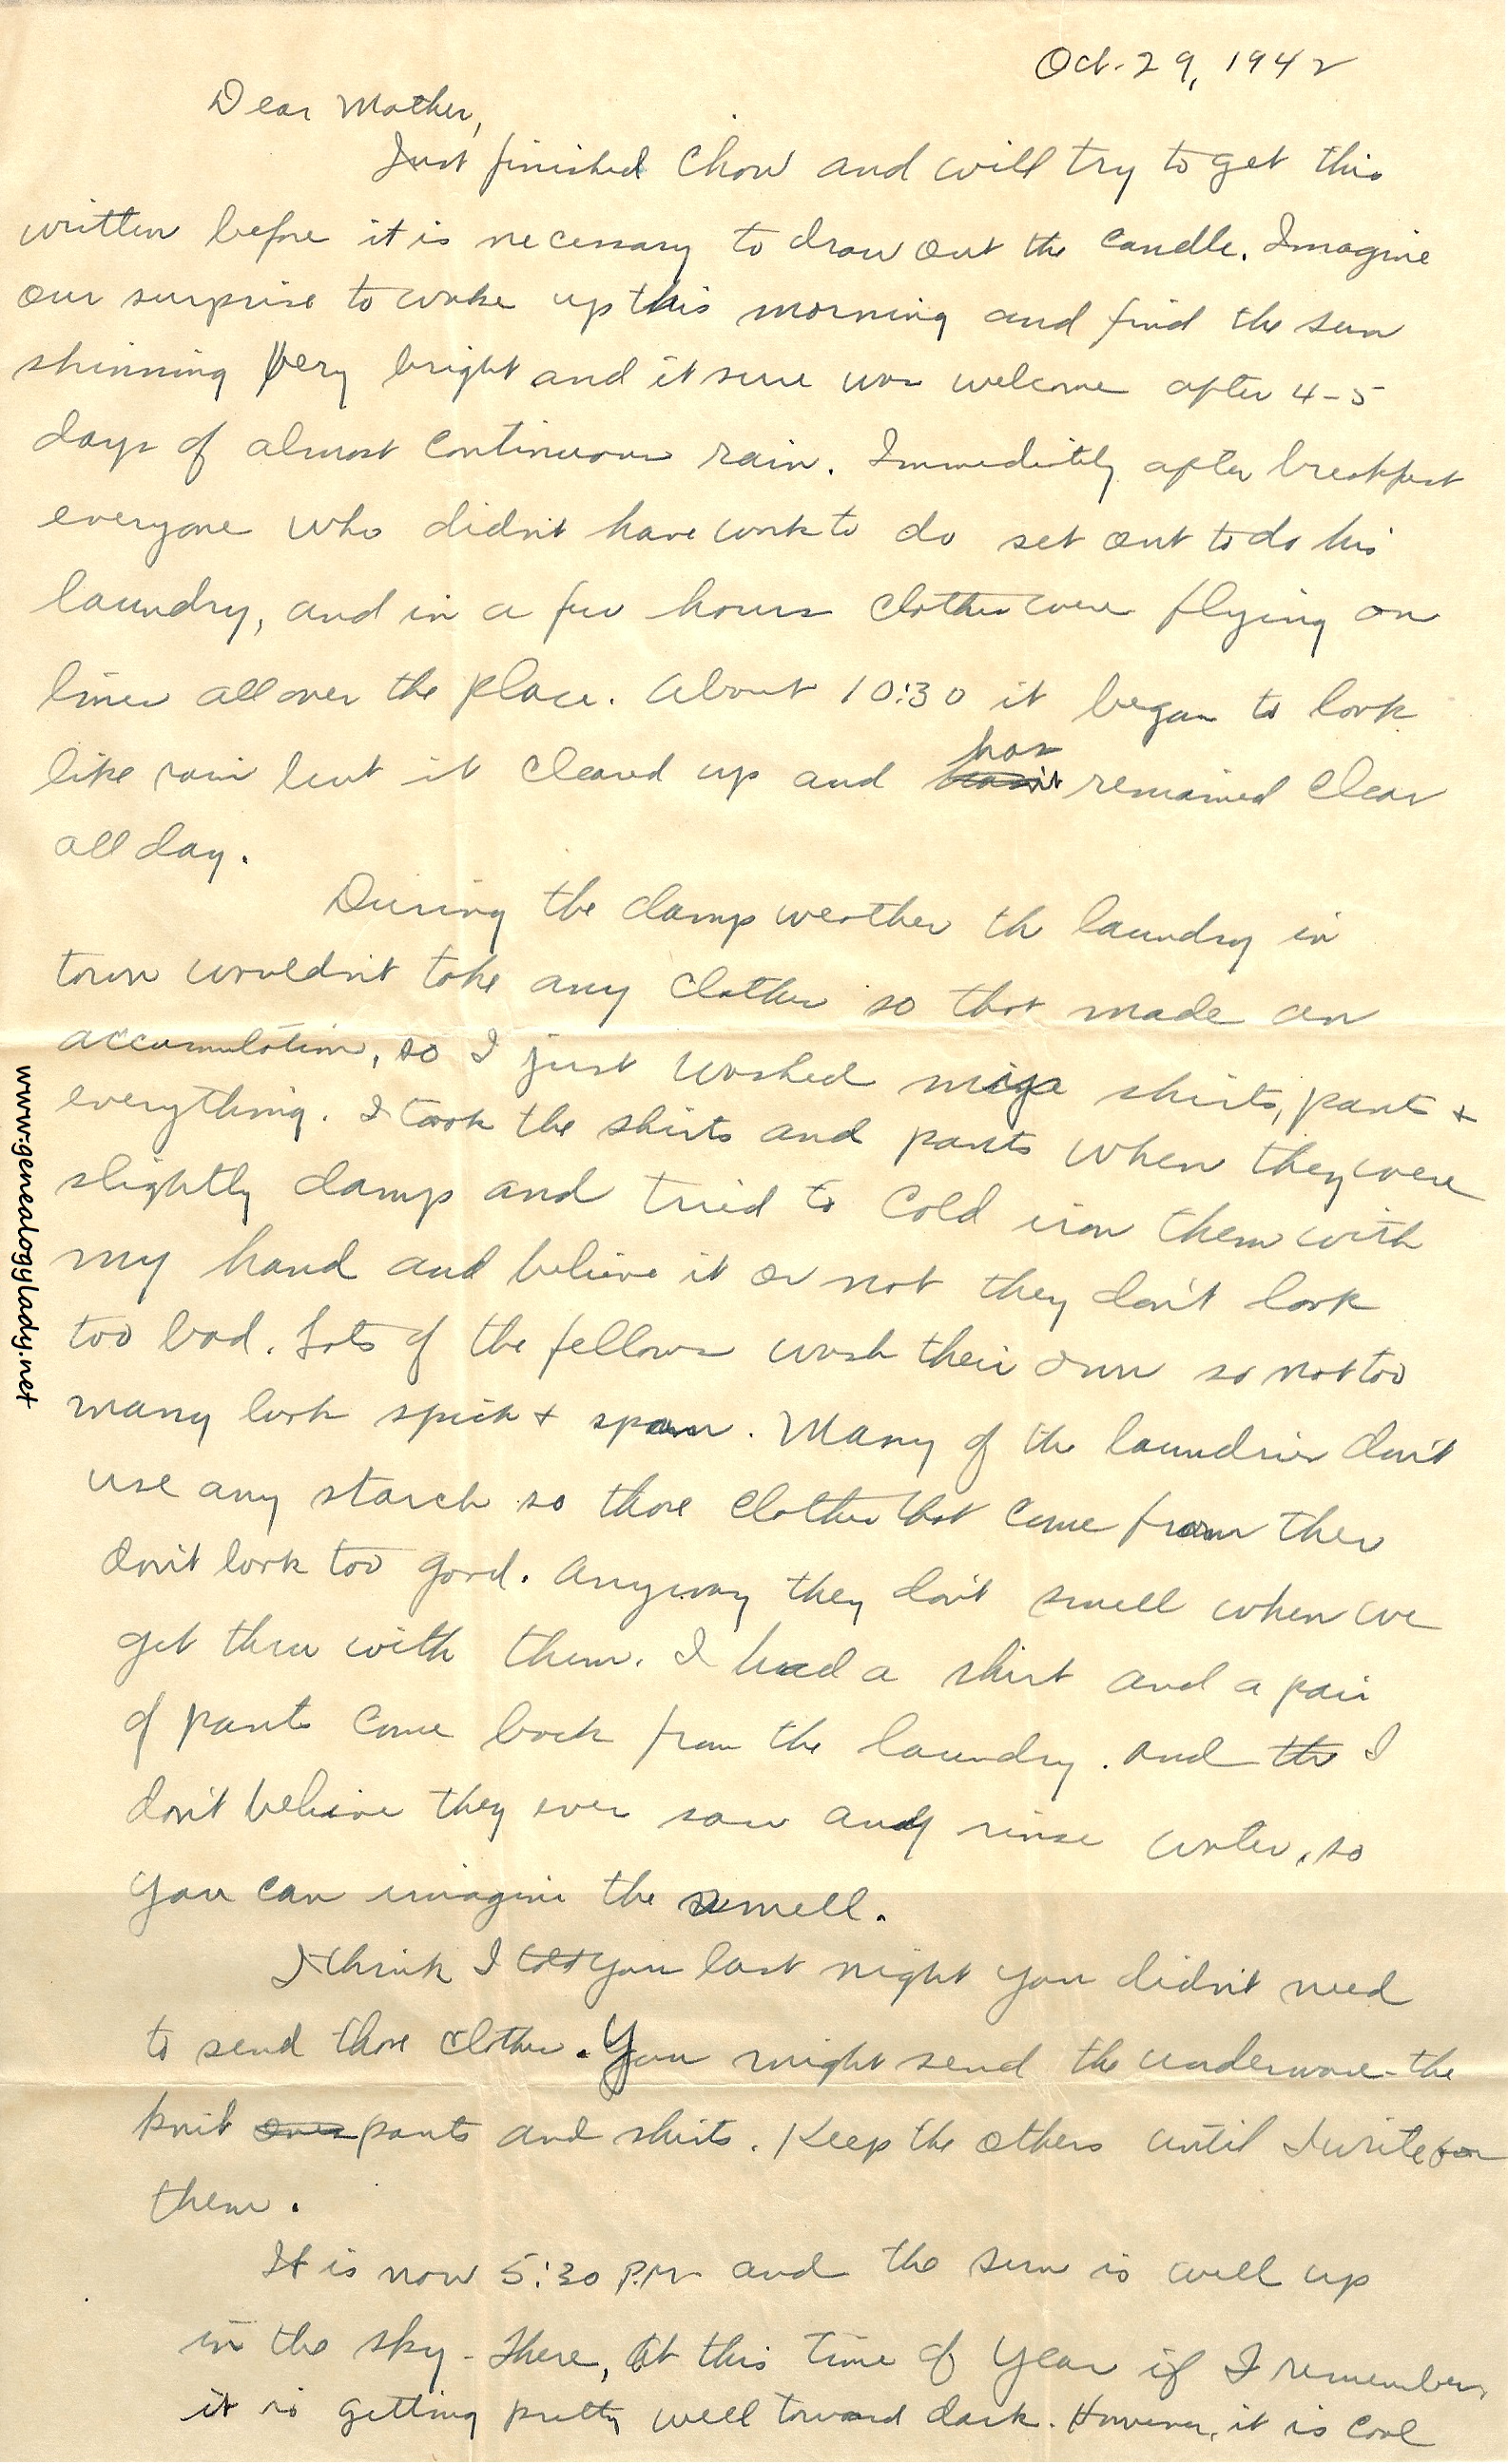 Oct. 29, 1942
Dear Mother,
Just finished chow and will try to get this
written before it is necessary to draw out the candle. Imagine
our surprise to wake up this morning and find the sun
shinning very bright and it sure was welcome after 4-5
days of almost continuous rain. Immeditily after breakfast
everyone who didn't have work to do set out to do his
laundry, and in a few hours clothes were flying on
lines all over the place. About 10:30 it began to look
like rain but it cleared up and has remained clear
all day.
During the damp weather the laundry in
town wouldn't take any clothes so that made an
accumulation, so I just washed my shirts, pants +
everything. I took the shirts and pants when they were
slightly damp and tried to cold iron them with
my hand and believe it or not they don't look
too bad. Lots of the fellows wash their own so not too
many look spick + span. Many of the laundries don't
use any starch so those clothes that come from ther
don't look too good. Anyway they don't smell when we
get thru with them. I had a shirt and a pair
of pants come back from the laundry. and the I
don't believe they ever saw any rinse water, so
you can imagine the smell.
I think I told you last night you didn't need
to send those clothes. You might send the underware - the
knit pants and shirts. Keep the others until I write for
them.
It is now 5:30 P.M. and the sun is well up
in the sky - there, at this time of year if I remember,
it is getting pretty well toward dark. However, it is cool
www.genealogylady.net